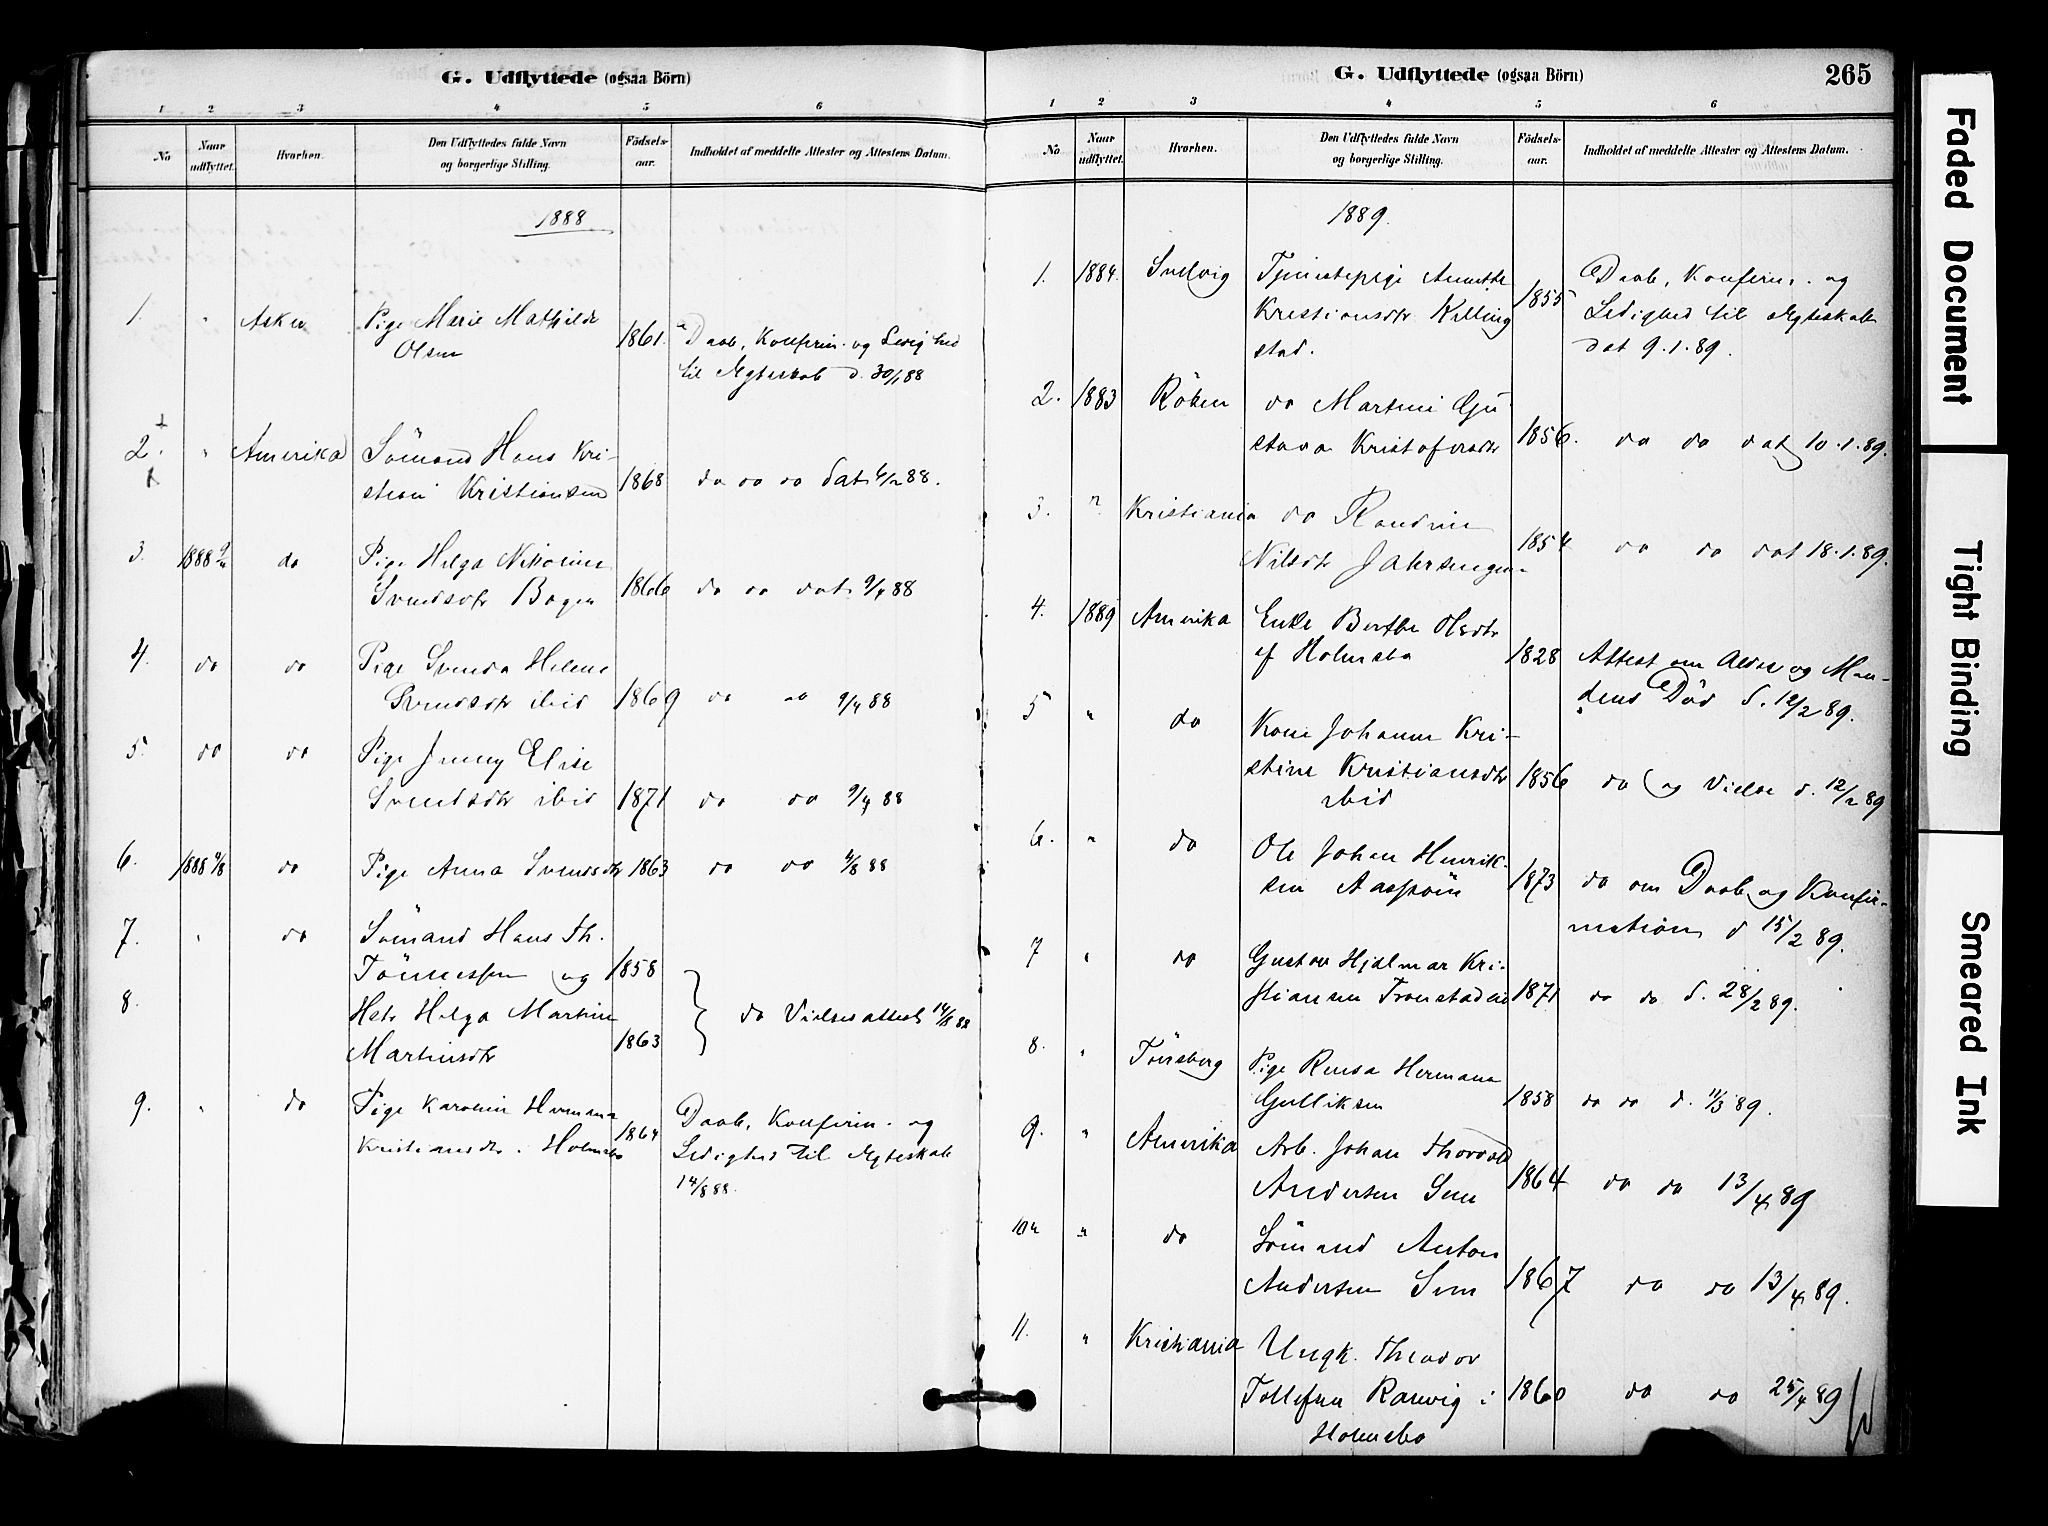 G. Udflyttede (ogsaa Börn)
1 2 3 4 5 6
No
Naar udflyttet.
Hvorhen.
Den Udflyttedes fulde Navn og borgerlige Stilling.
Födsels-aar.
Indholdet af meddelte Attester og Attestens Datum.
1888
1. " Asker Pige Marie Mathilde
Olsen 1861. Daab, Konfirm. og Ledighed
til Ægteskab d. 30/1 88
2. " Amerika Sömand Hans Kri-
stian Kristiansen 1868 do do do dat 4/2 88.
3. 1888 9/4 do Pige Helga Nikoline
Svendsdtr Bogen 1866 do do dat 9/4 88
4. do do Pige Svenda Helene
Svendsdtr ibid 1869 do do 9/4 88
5. do do Pige Jenny Elise
Svendsdtr ibid 1871 do do 9/4 88
6. 1888 4/8 do Pige Anna Svendsdtr 1863 do do 4/8 88
7. " do Sömand Hans Th.
Tönnessen og 1858
8. Hstr Helga Martine
Martinsdtr 1863 do Vielsesattest 14/8 88
9. " do Pige Karoline Hermana
Kristiansdtr. Holmsbo 1864 Daab, Konfirm. og
Ledighed til Ægteskab
14/8 88.
G. Udflyttede (ogsaa Börn) 265
1 2 3 4 5 6
No
Naar udflyttet.
Hvorhen.
Den Udflyttedes fulde Navn og borgerlige Stilling.
Födsels-aar.
Indholdet af meddelte Attester og Attestens Datum.
1889.
1. 1884. Svelvig Tjenestepige Annette
Kristiansdtr Killing
stad. 1855 Daab, Konfirm. og
Ledighed til Ægteskab
dat 9.1.89.
2. 1883 Röken do Martine Gu-
stava Kristofersdtr 1856. do do dat 10.1.89.
3. " Kristiania do Randine
Nilsdtr 1854 do do dat 18.1.89.
4. 1889 Amerika Enke Berthe Olsdtr
af Holmsbo 1828 Attest om Alder og Man-
dens Död d. 12/2 89.
5 " do Kone Johanne Kri-
stine Kristiansdtr
ibid 1856 do og Vielse d. 12/2 89
6. " do Ole Johan Henrik-
sen 1873 do om Daab og Konfir-
mation d 15/2 89.
7 " do Gustav Hjalmar Kri-
stiansen Tronstadeie 1871 do do d. 28/2 89.
8. " Tönsberg Pige Rensa Hermana
Gulliksen 1858 do do d. 11/3 89.
9. " Amerika Arb. Johan Thorvald
Andersen Sem 1864 do do 13/4 89
10 " " do Sömand Anton
Andersen Sem 1867 do do 13/4 89.
11. " Kristiania Ungk. Theodor
Tollefsen Ramvig i
Holmsbo 1860 do do 25/4 89
Faded Document
Tight Binding
Smeared Ink